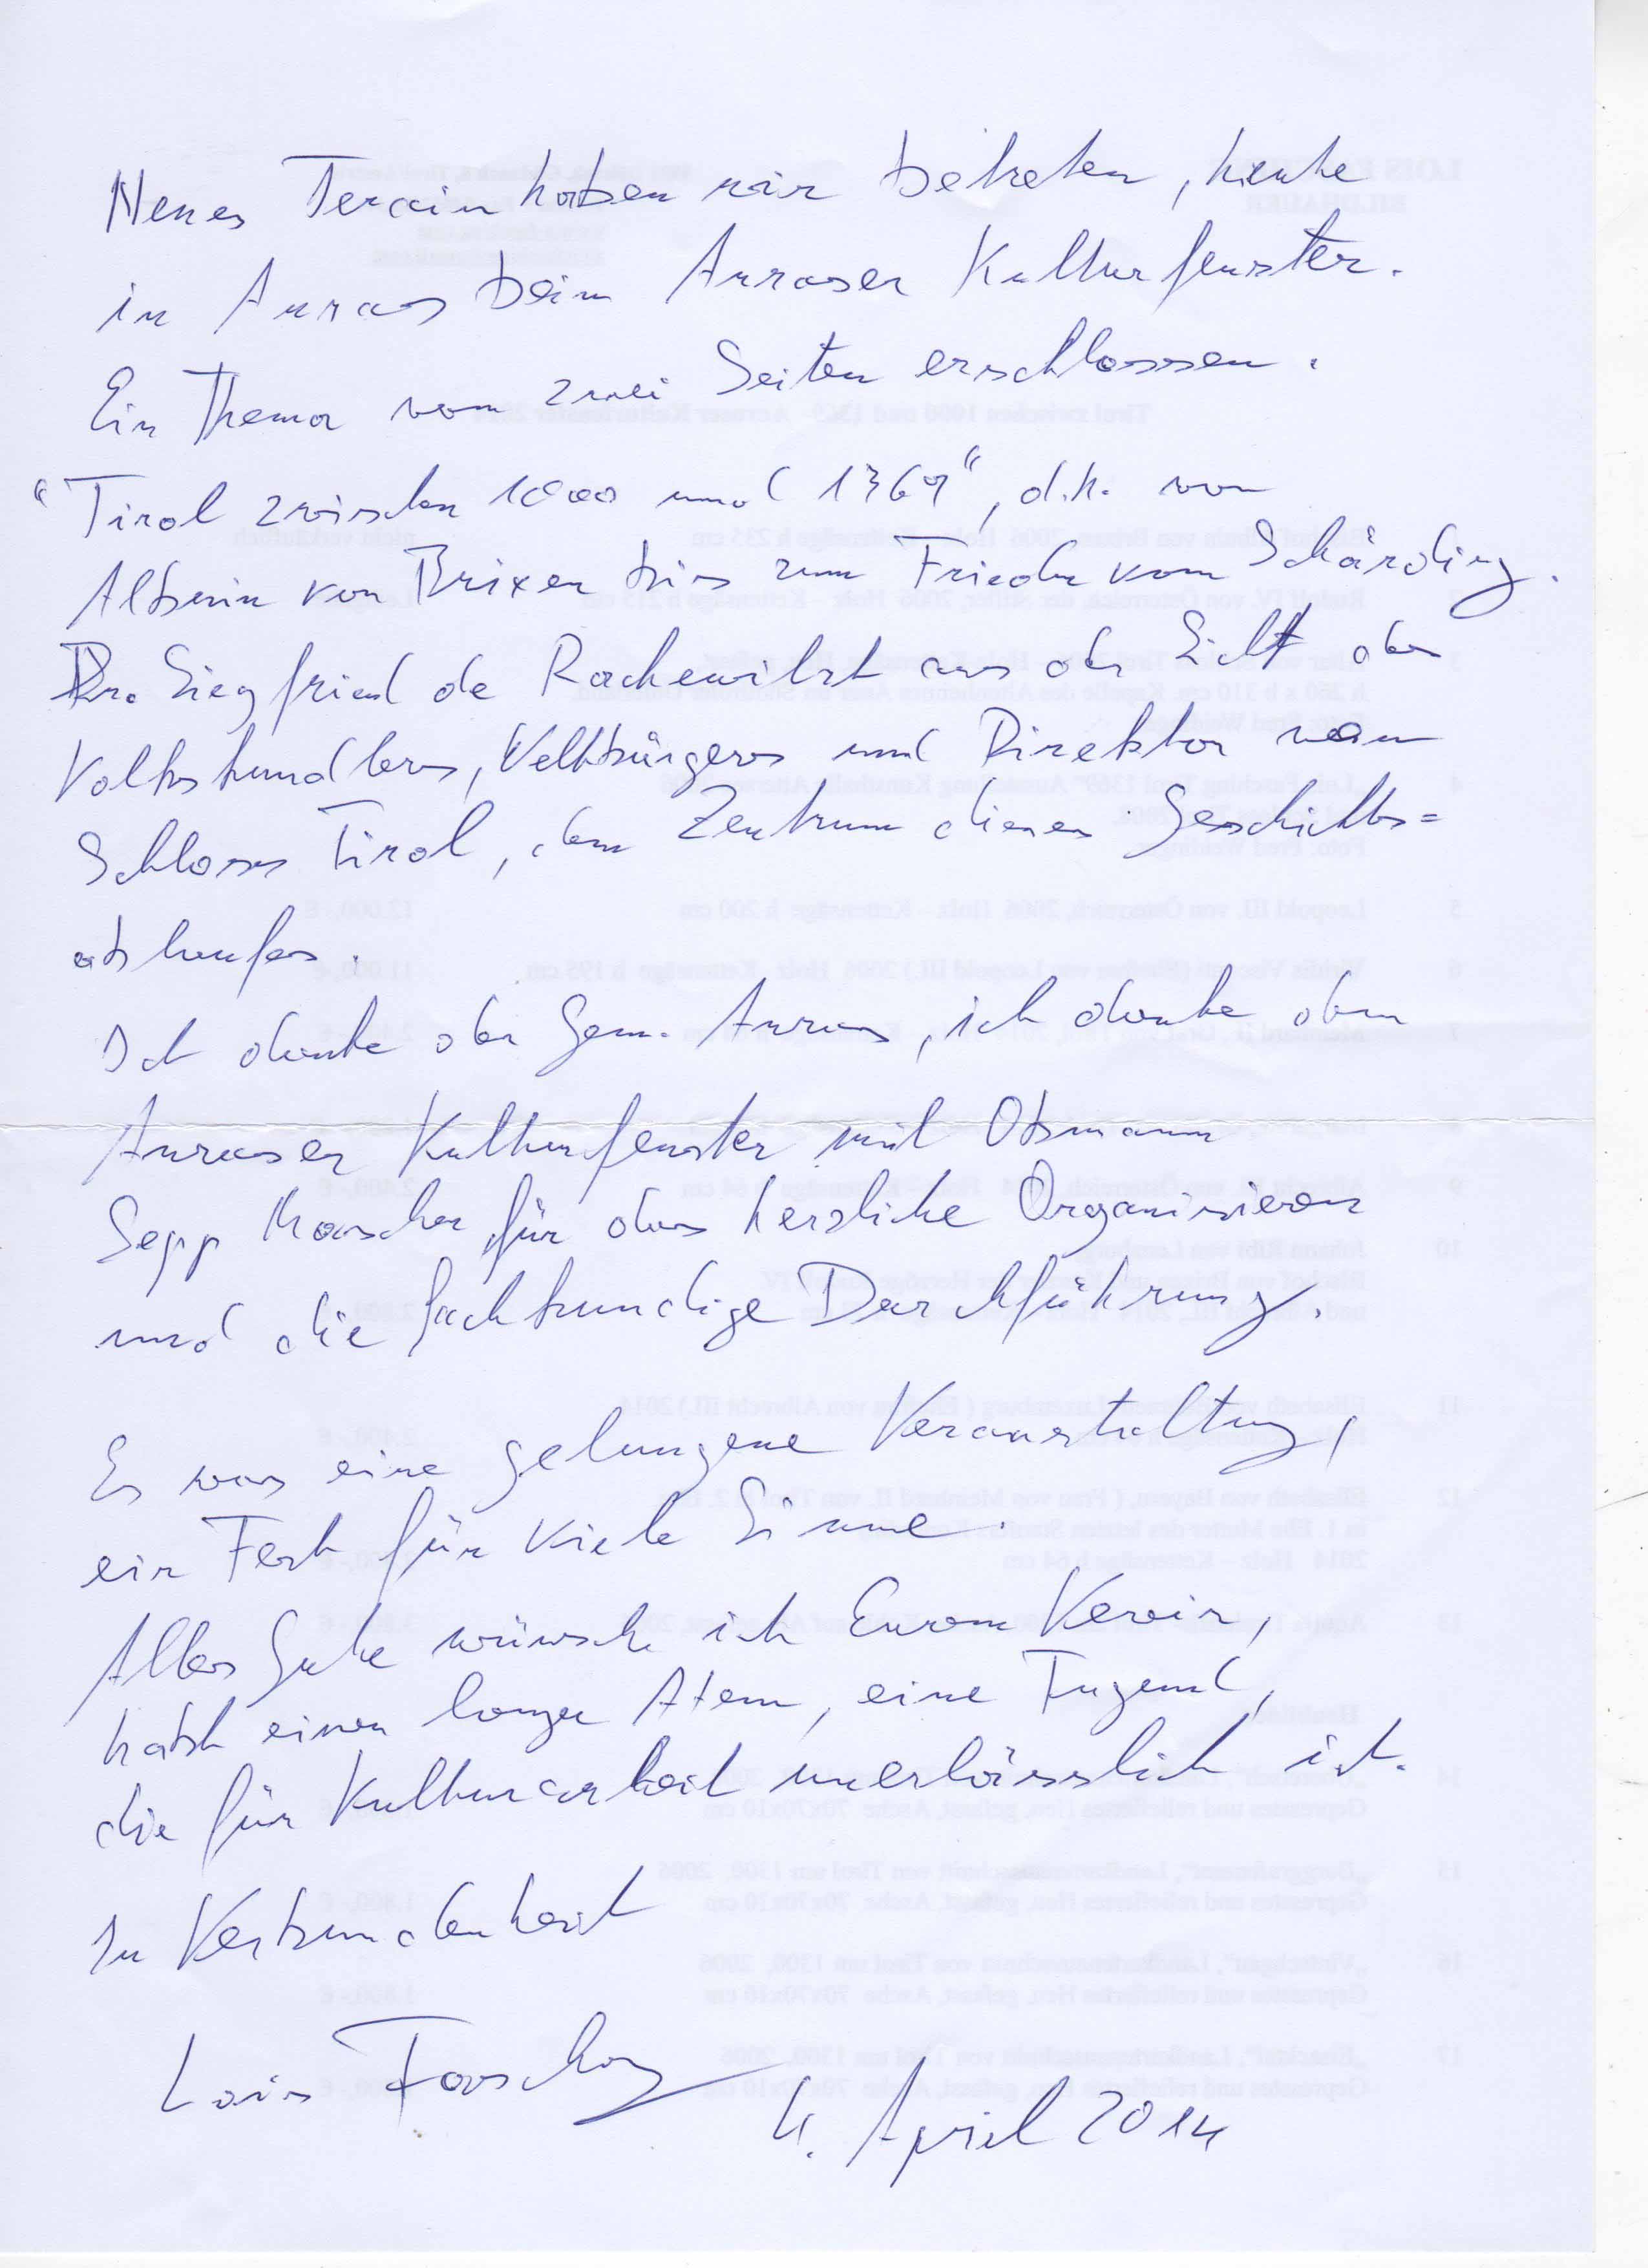 Neues Terrain haben wir betreten, heute
in Anras beim Anraser Kulturfenster.
Ein Thema von zwei Seiten erschlossen.
"Tirol zwischen 1000 und 1369", d.h. von
Albuin von Brixen bis zum Frieden von Schärding.
Dr. Siegfried de Rachewiltz aus der Sicht des
Volkskundlers, Weltbürgers und Direktor vom
Schloss Tirol, dem Zentrum dieses Geschichts=
ablaufes.
Ich danke der Gem. Anras, ich danke dem
Anraser Kulturfenster mit Obmann
Sepp Mascher für das herzliche Organisieren
und die fachkundige Durchführung.
Es war eine gelungene Veranstaltung,
ein Fest für viele Sinne.
Alles Gute wünsche ich Eurem Verein,
habt einen langen Atem, eine Tugend,
die für Kulturarbeit unerlässlich ist.
In Verbundenheit
Lois Fasching
4. April 2014